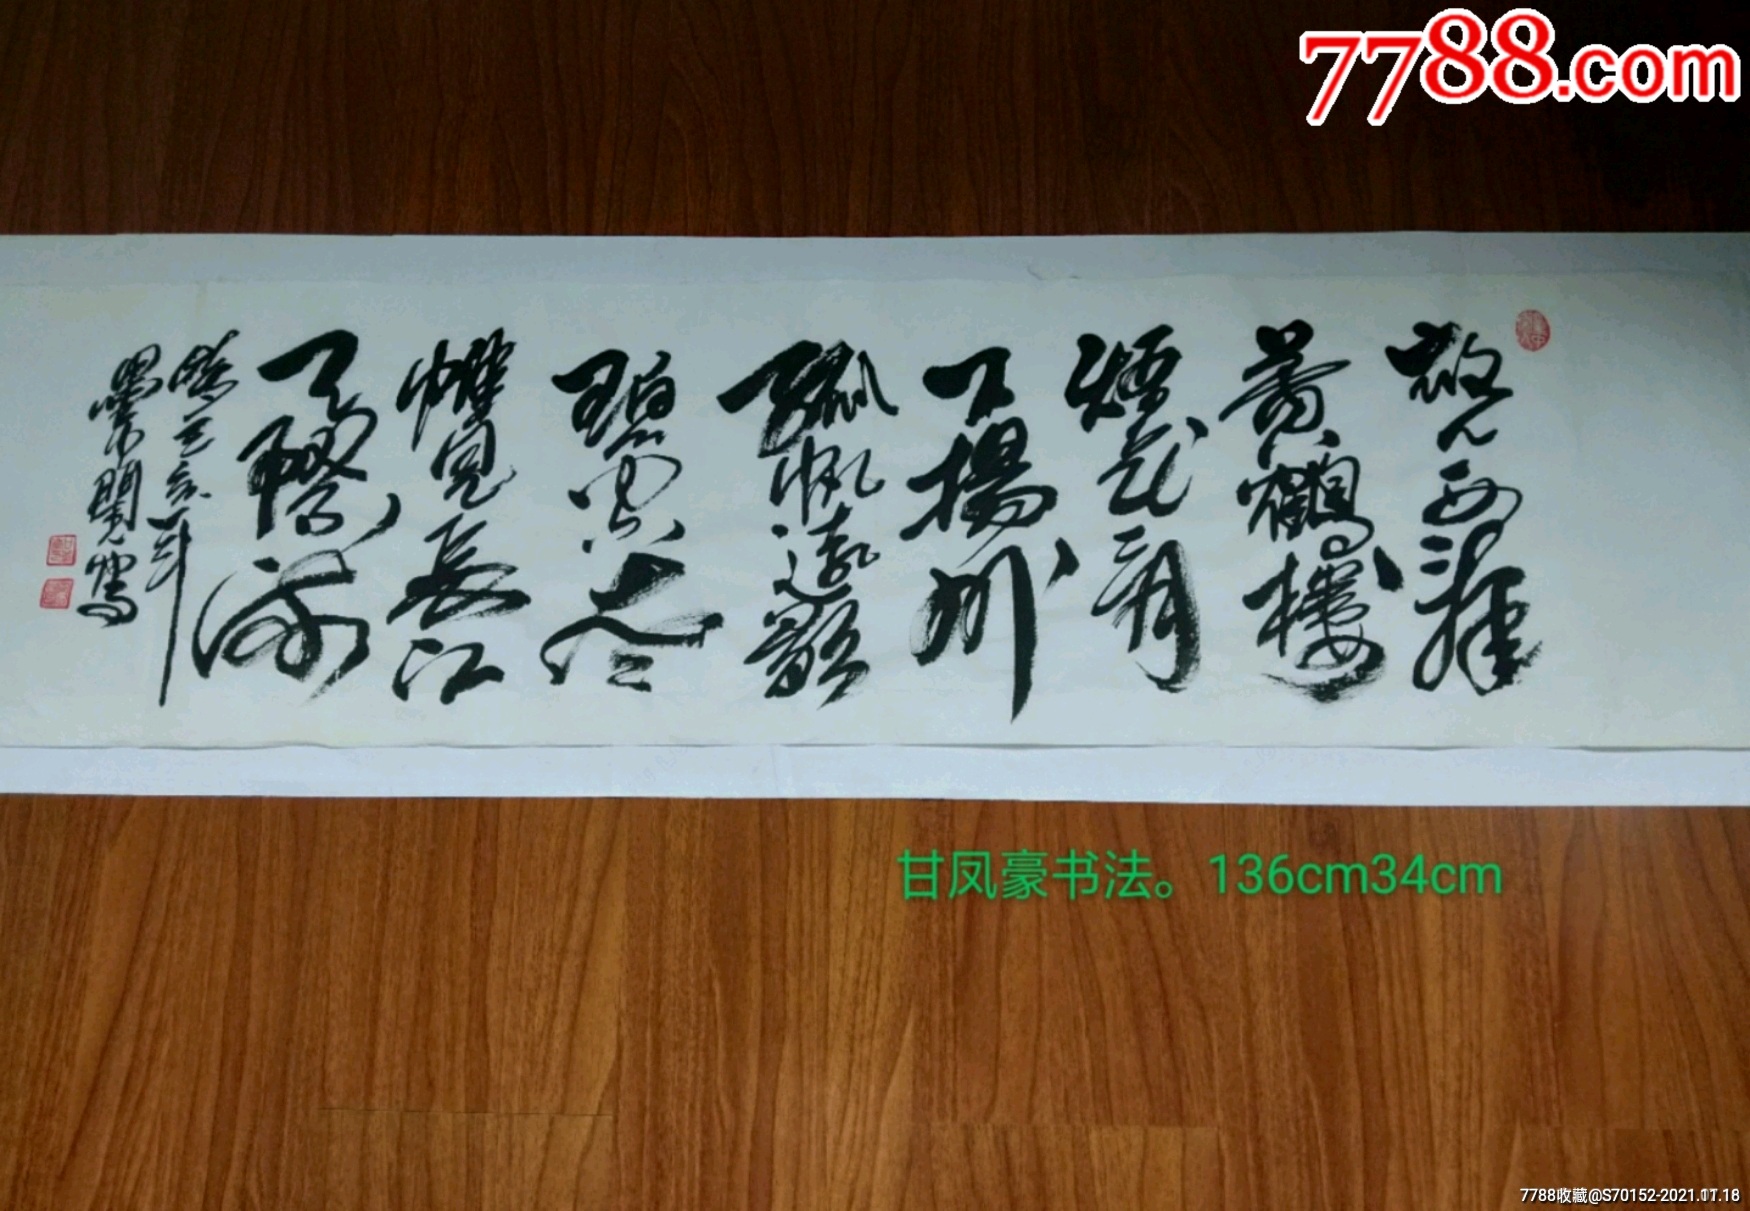 7788.com
故人西辞
黄鶴樓
煙花三月
下揚州
孤帆遠影
碧空尽
惟見長江
天際流
甘凤豪书法。136cm34cm
7788收藏@S70152-2021.